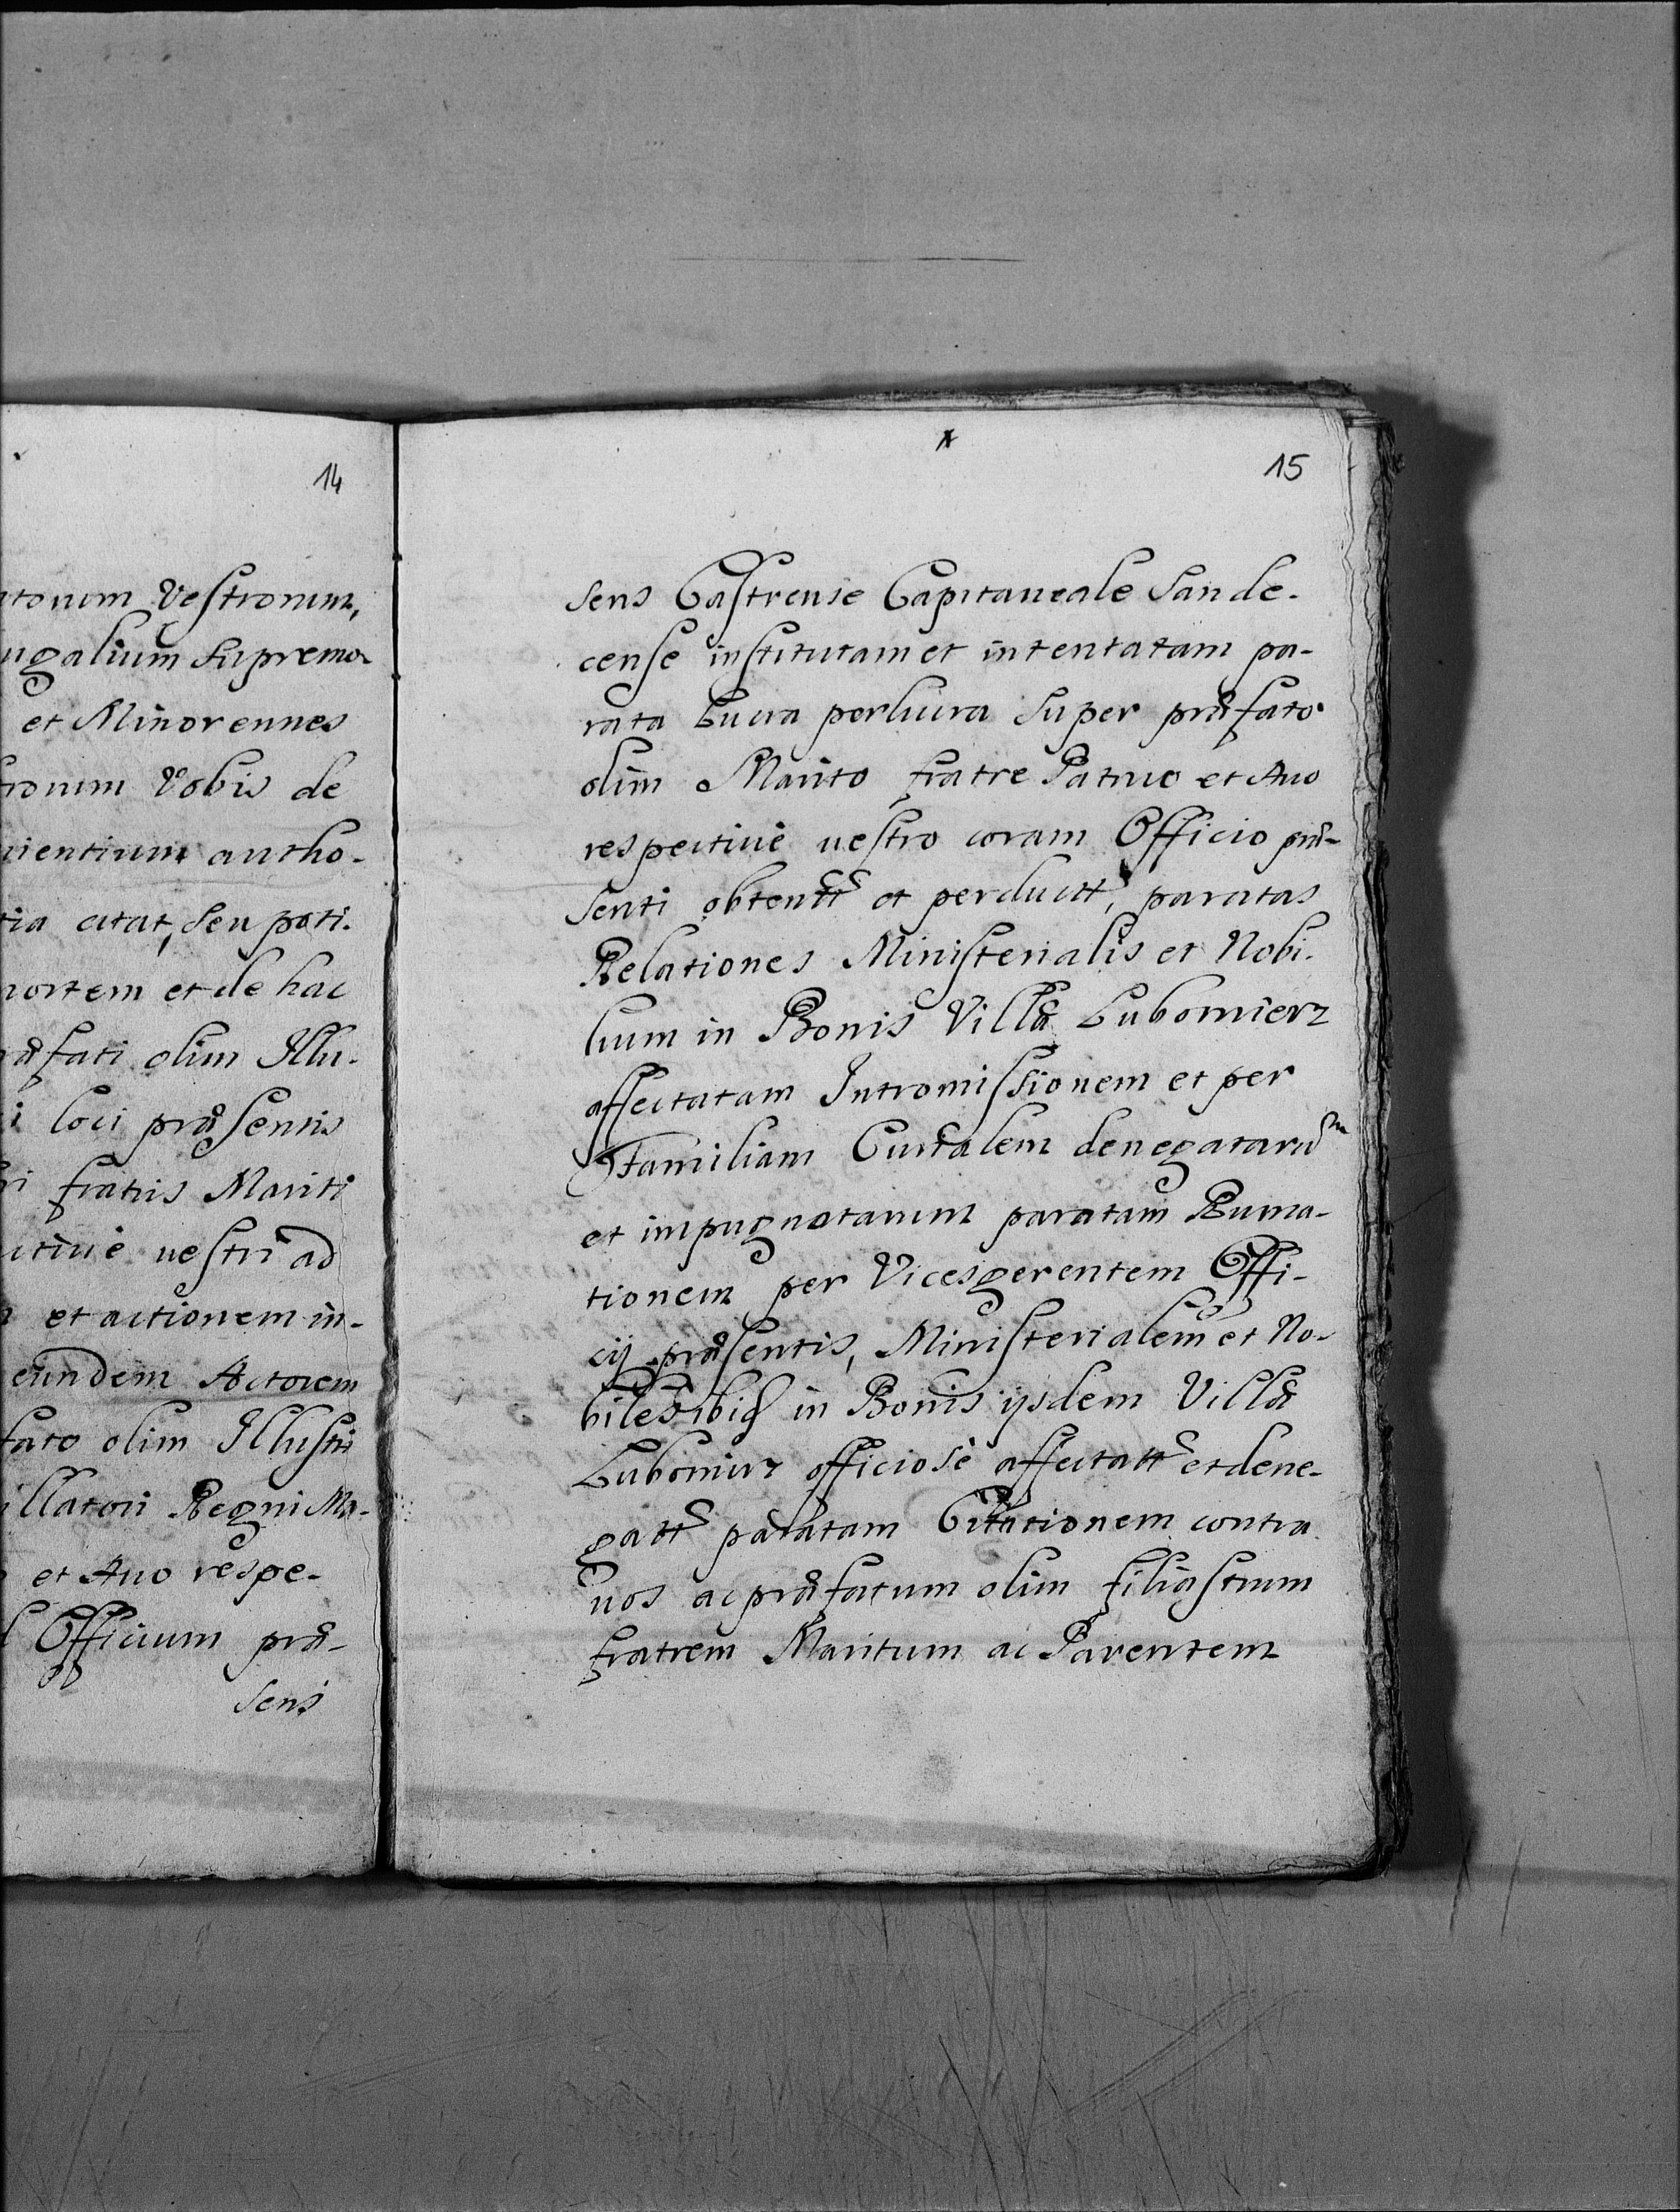 14
torum Vestrorum,
ugalium Supremo
et Minorennes
trorum Vobis de
nientium autho-
tia citat, seu poti-
mortem et de hac
ræfati olim Illu-
i loci præsentis
ri fratris Mariti
ctivè vestri ad
et actionem in-
eundem Actorem
fato olim Illustri
illatori Regni Ma-
et Avo respe-
Officium præ-
sens
15
sens Castrense Capitaneale Sande-
cense institutam et intentatam pa-
rata Lucra perlucra super præfato
olim Marito fratre Patruo et Avo
respectivè vestro coram Officio præ-
senti obtentt et perductt, paratas
Relationes Ministerialis et Nobi-
lium in Bonis Villæ Lubomierz
affectatam Intromissionem et per
Familiam Curialem denegatarum
et impugnatarum paratam Ruma-
tionem per Vicesgerentem Offi-
cij præsentis, Ministerialem et No-
biles ibid in Bonis ijsdem Villæ
Lubomirz officiosè affectatt et dene-
gatt paratam Citationem contra
vos ac præfatum olim filiastrum
fratrem Maritum ac Parentem